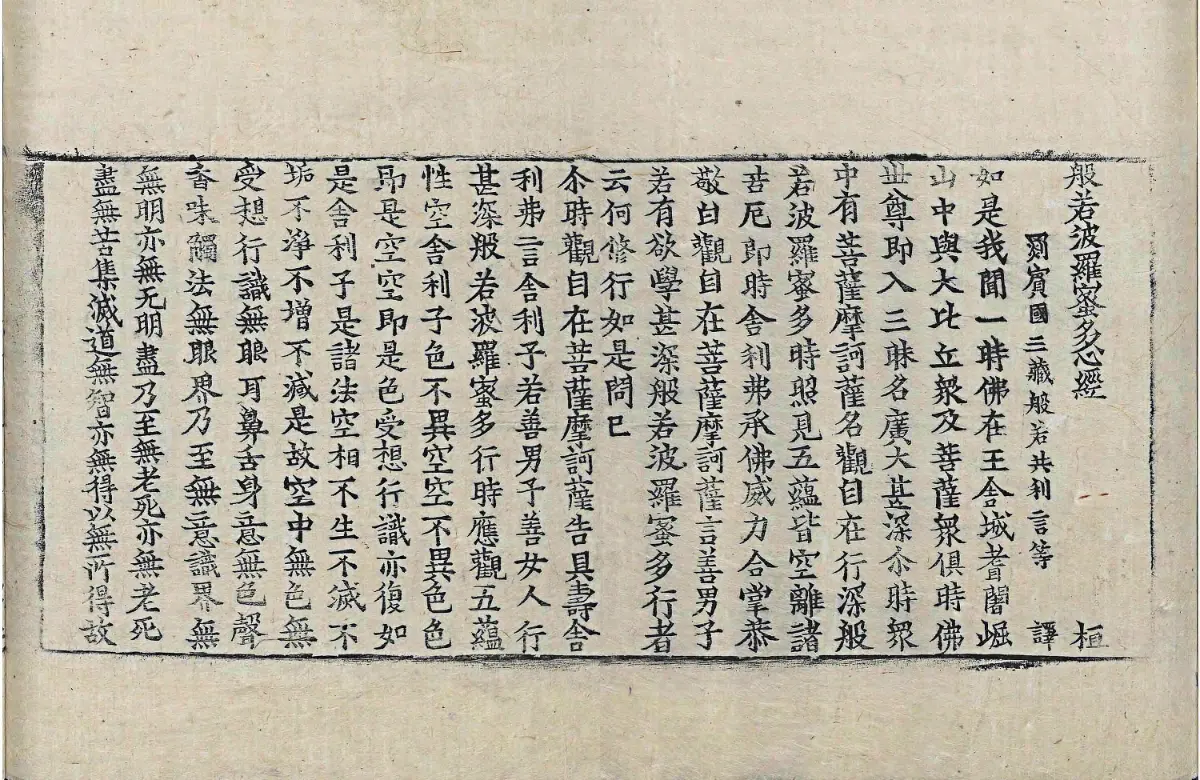 般若波羅蜜多心經　桓
罽賓國三藏般若共利言等　譯
如是我聞一時佛在王舍城耆闍崛
山中與大比丘衆及菩薩衆俱時佛
世尊即入三昧名廣大甚深尒時衆
中有菩薩摩訶薩名觀自在行深般
若波羅蜜多時照見五蘊皆空離諸
苦厄即時舍利弗承佛威力合掌恭
敬白觀自在菩薩摩訶薩言善男子
若有欲學甚深般若波羅蜜多行者
云何修行如是問已
尒時觀自在菩薩摩訶薩告具壽舍
利弗言舍利子若善男子善女人行
甚深般若波羅蜜多行時應觀五蘊
性空舍利子色不異空空不異色色
即是空空即是色受想行識亦復如
是舍利子是諸法空相不生不滅不
垢不淨不增不減是故空中無色無
受想行識無眼耳鼻舌身意無色聲
香味觸法無眼界乃至無意識界無
無明亦無无明盡乃至無老死亦無老死
盡無苦集滅道無智亦無得以無所得故